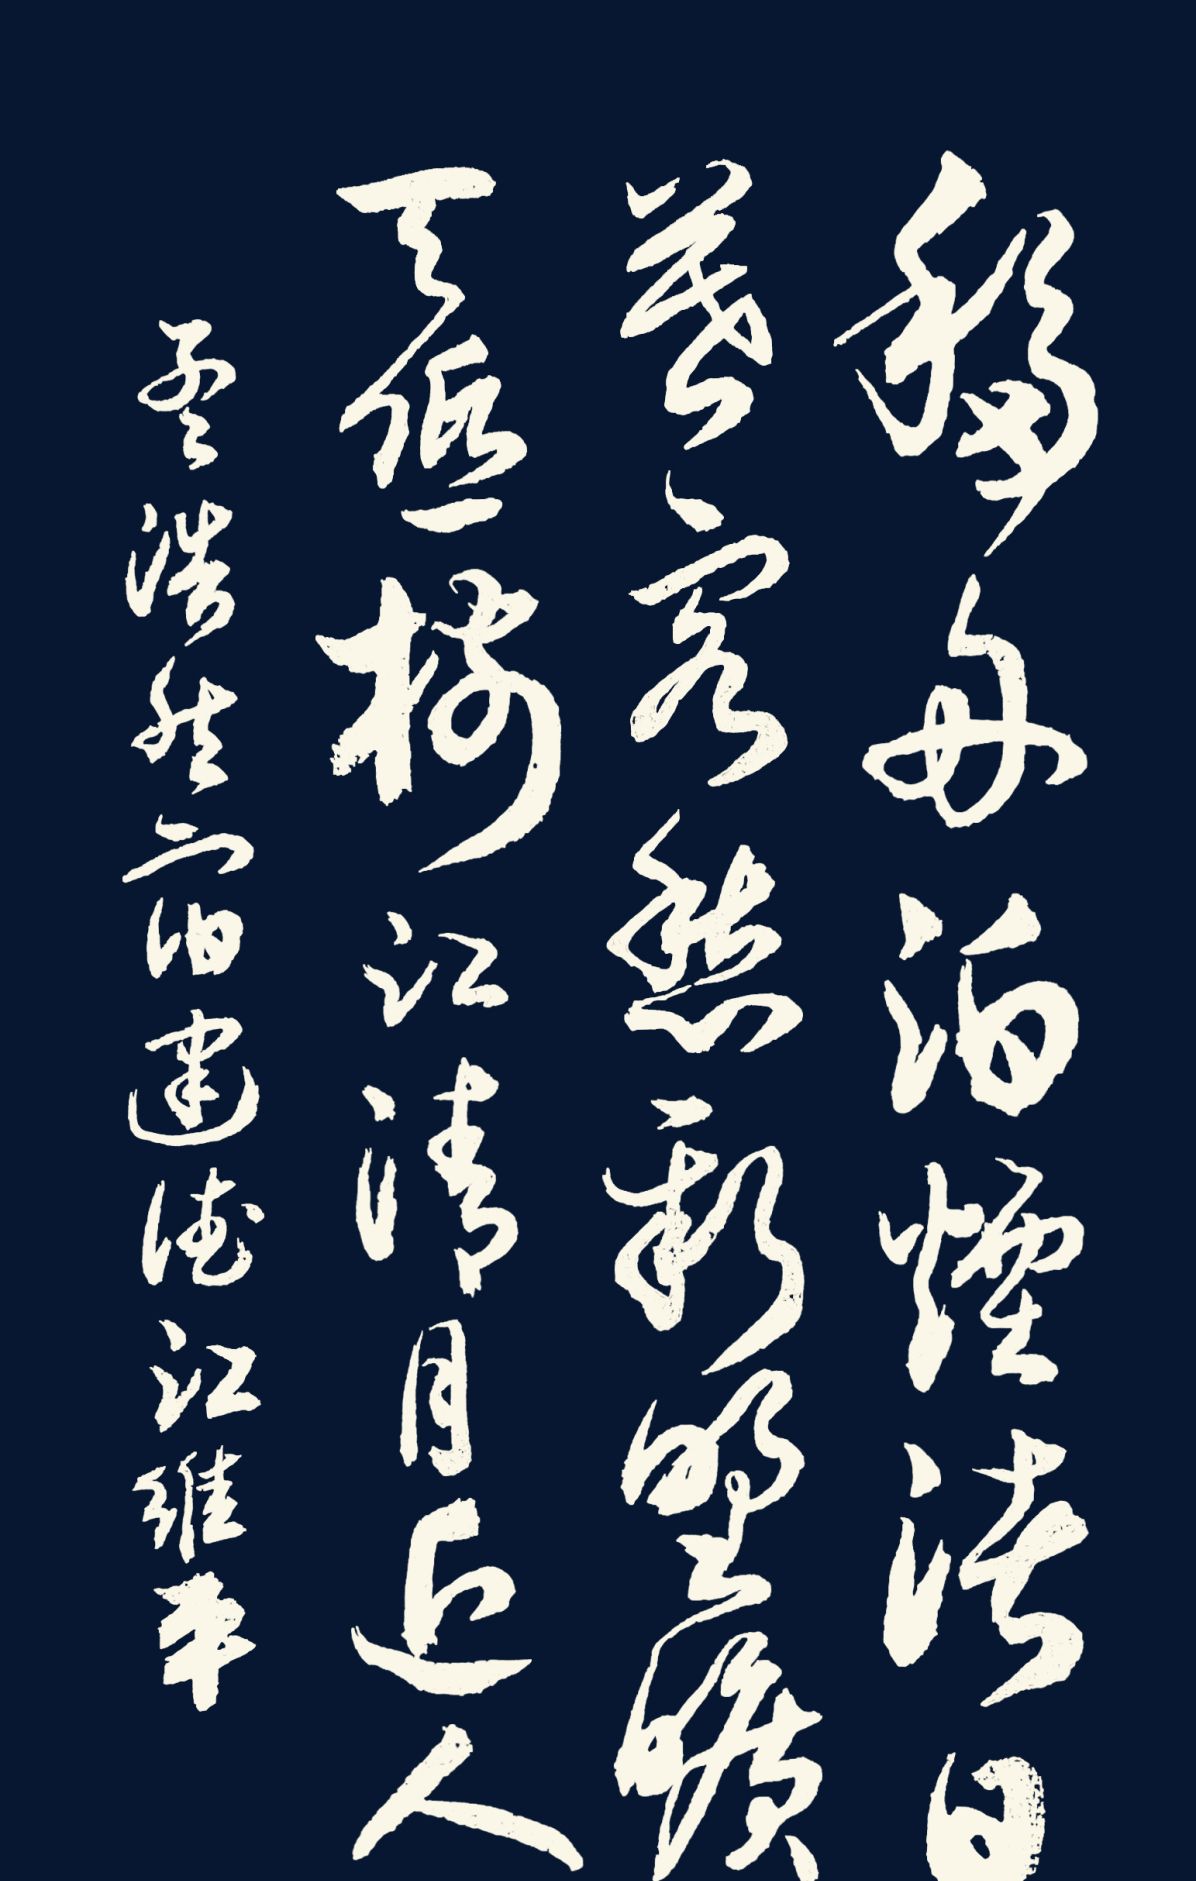 移舟泊煙渚日
暮客愁新野曠
天低樹江清月近人
孟浩然宿建德江維平